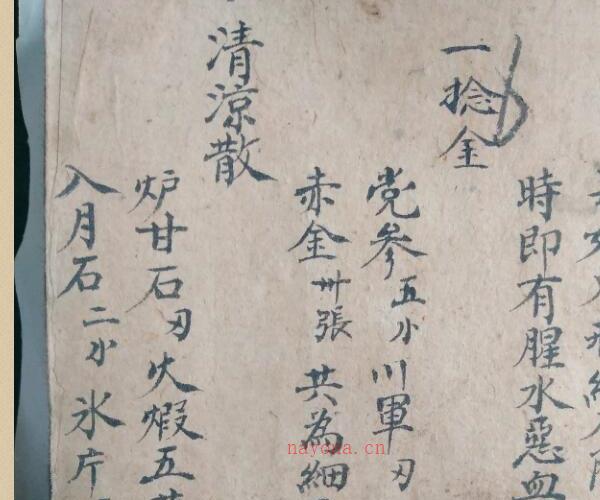 時即有腥水惡血
一捻金
党參五小川軍刃
赤金卅張共為細
清涼散
炉甘石刃火煆五
八月石二小氷片
nayona.cn